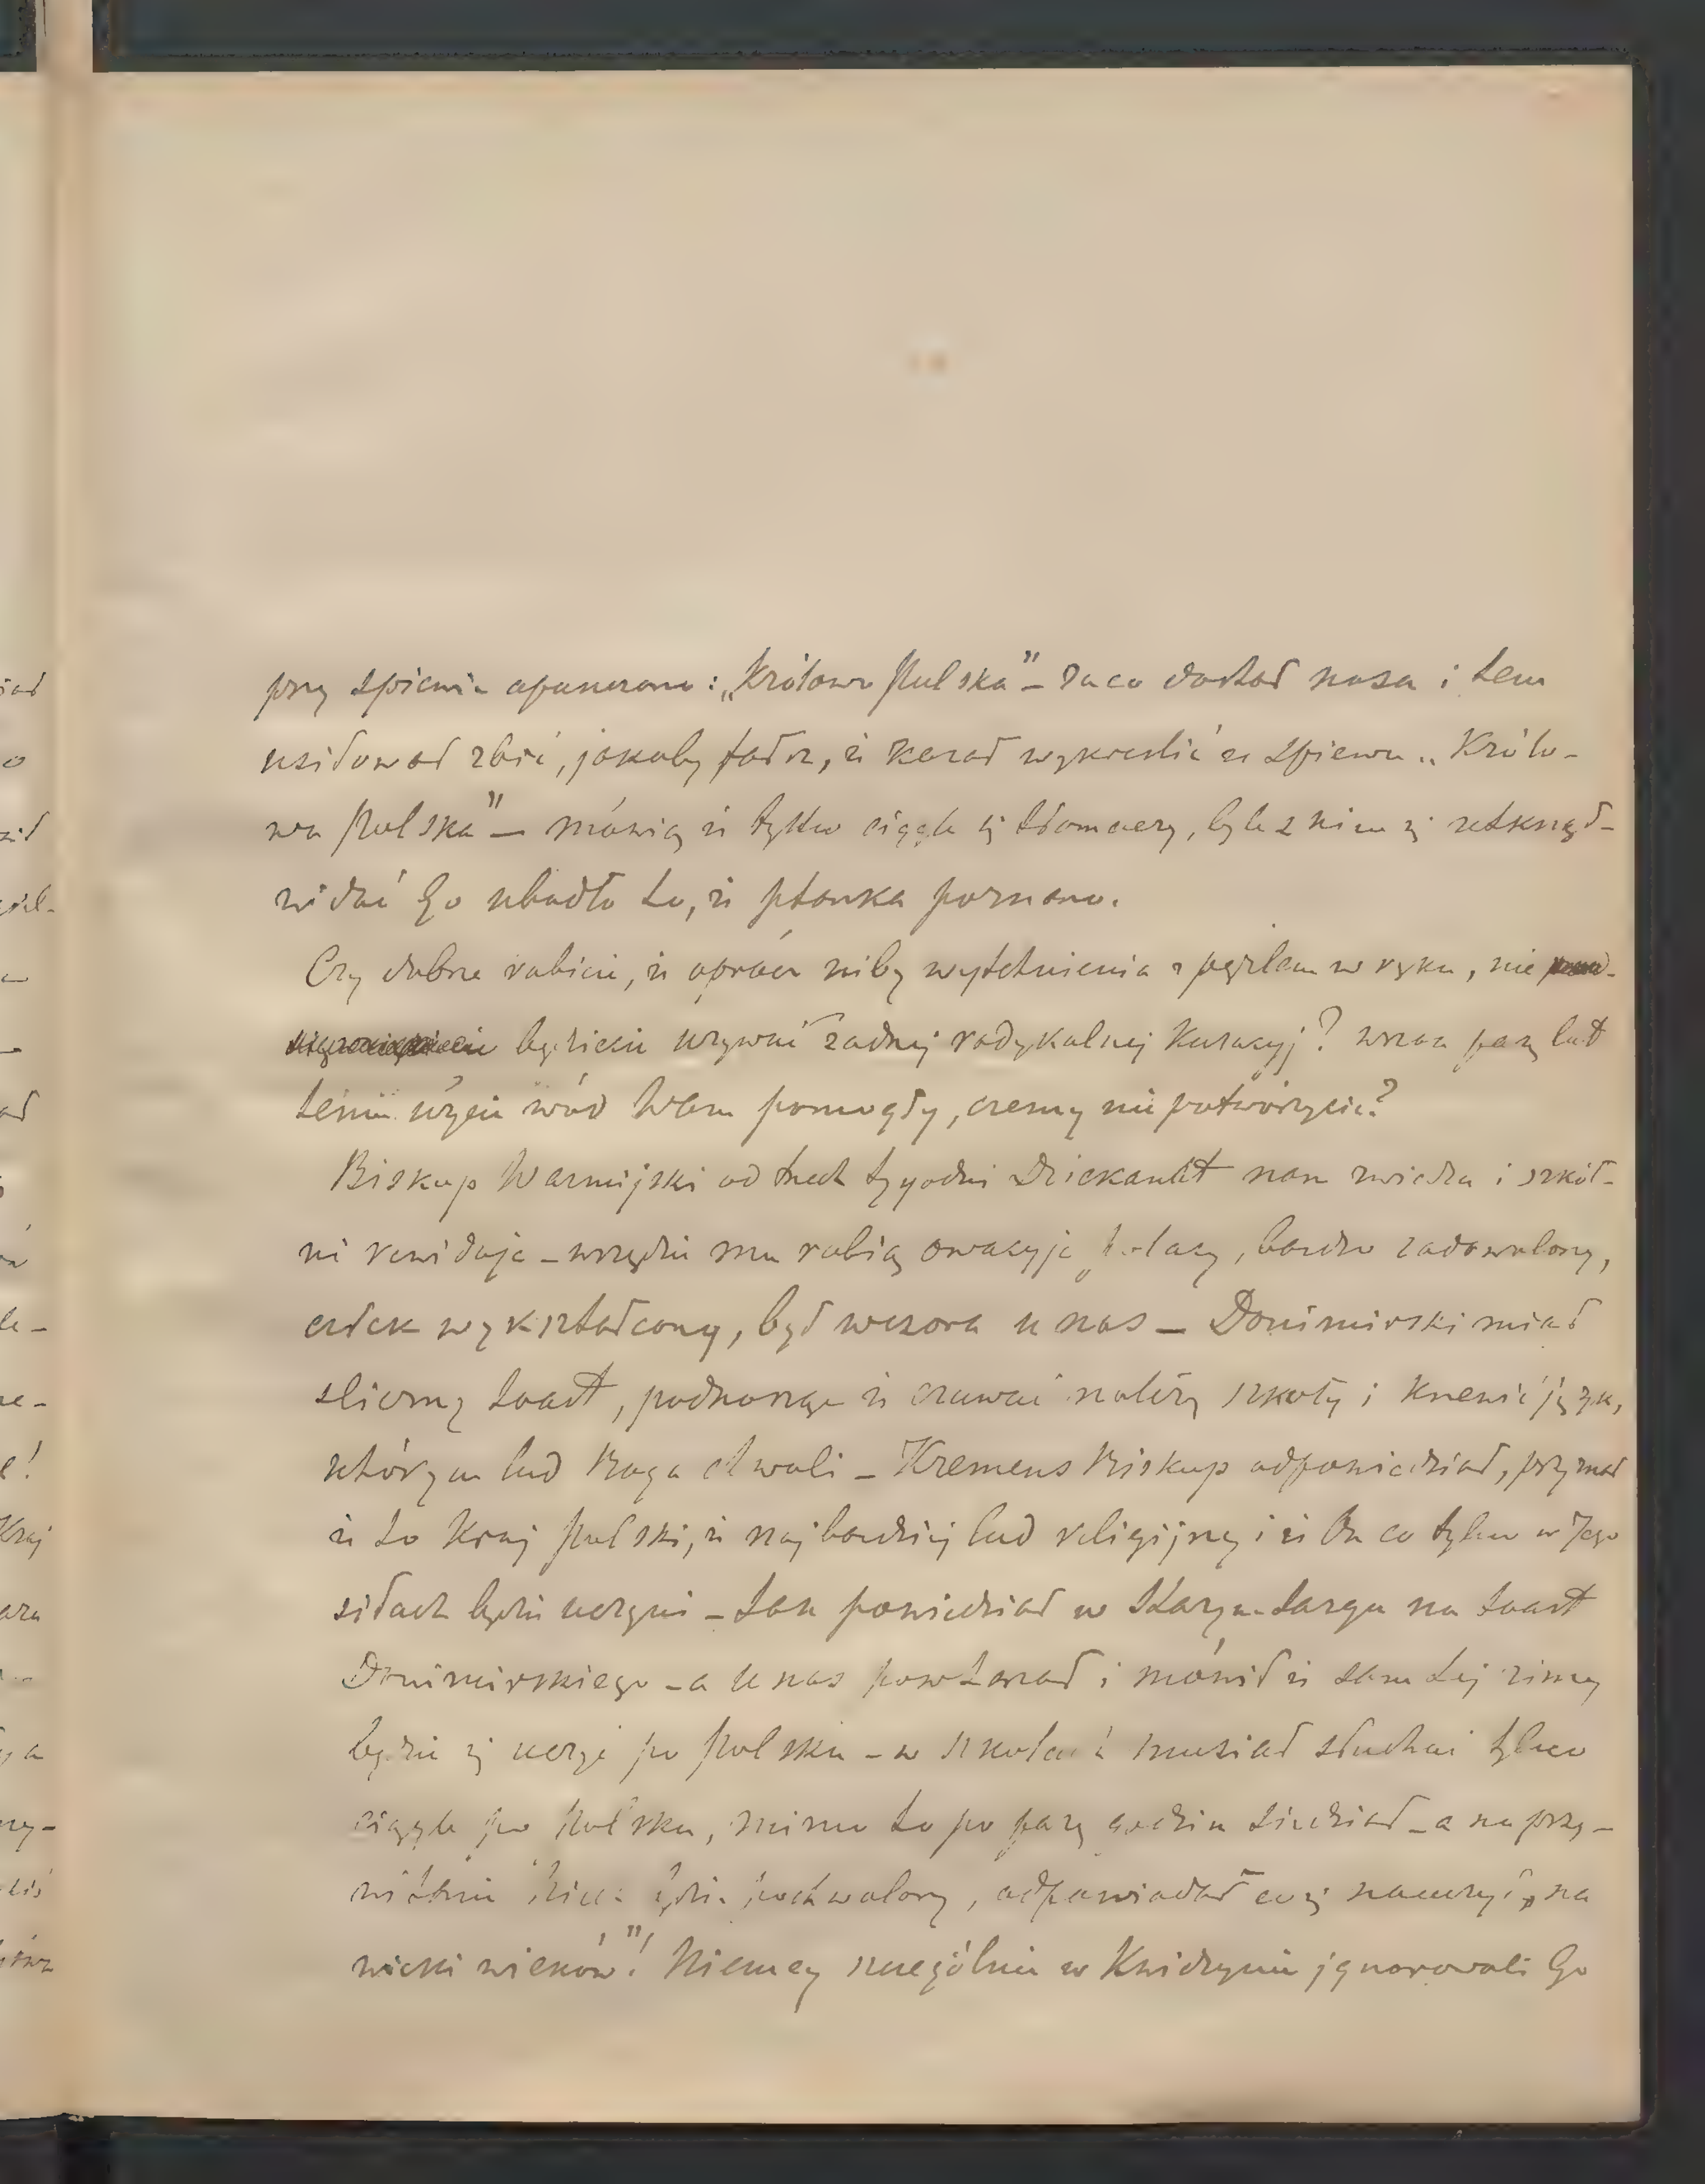 przy śpiewie opuszczono: „Królowo Polska” – za co dostał nosa i tem
usiłował zbić, jakoby fałsz, iż kazał wykreślić ze śpiewu „Królo-
wa Polska” – mówią iż tylko ciągle się tłomaczy, byle z kim się zetknął –
widać Go ubodło to, iż ptaszka poznano.
Czy dobrze robicie, iż oprócz niby wytchnienia z pęzlem w ręku, nie
będziecie używać żadnej radykalnej kuracyj? wszak parę lat
temu użycie wód Wam pomogły, czemu nie potwórzycie?
Biskup Warmijski od trzech tygodni Dziekanat nasz zwiedza i szkół-
ki rewiduje – wszędzie mu robią owacyje Polacy, bardzo zadowolony,
człek wykształcony, był wczora u nas – Donimirski miał
śliczny toast, podnosząc iż czuwać należy szkoły i krzewić język,
którym lud Boga chwali – Krements Biskup odpowiedział, przyznał
iż to Kraj Polski, iż najbardziej lud religijny i iż On co tylko w Jego
siłach będzie uczyni – tak powiedział w Starym-targu na toast
Donimirskiego – a u nas powtarzał i mówił iż sam tej zimy
będzie się uczyć po Polsku – w szkołach musiał słuchać tylko
ciągle po Polsku, mimo to po parę godzin siedział – a na przy-
witanie pochwalony, odpowiadał co się nauczył, „na
wieki wieków”! Niemcy szczególnie w Kwidzynie ignorowali Go